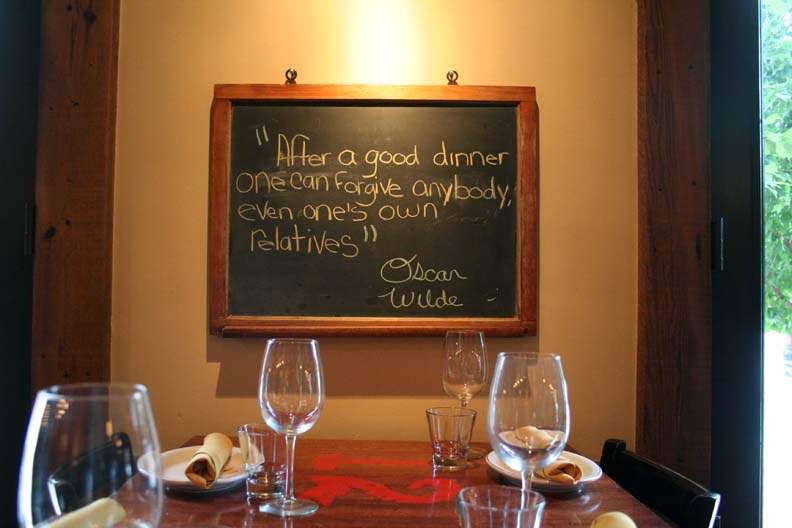 "After a good dinner
one can forgive anybody,
even one's own
relatives"
Oscar
Wilde